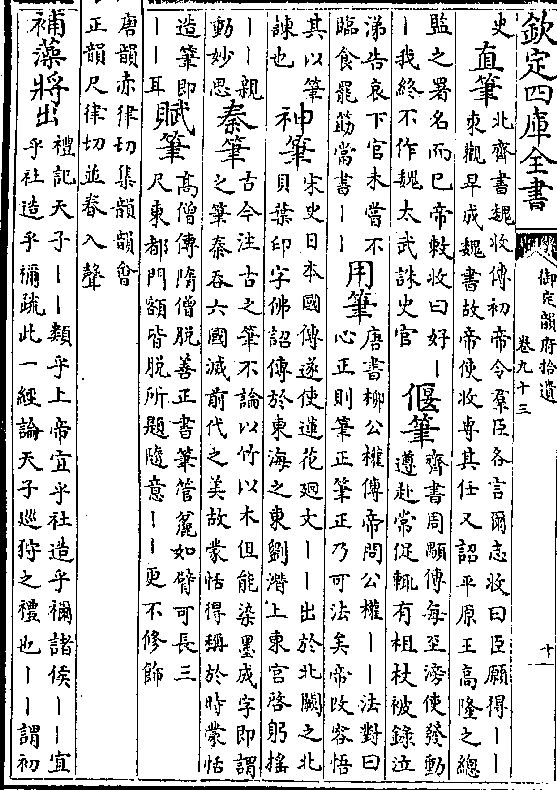 欽定四庫全書
御定韻府拾遺
卷九十三
十一
史
直筆
北齊書魏收傳初帝令羣臣各言爾志收曰臣願得丨丨
東觀早成魏書故帝使收專其任又詔平原王高隆之總
監之署名而已帝敕收曰好丨
丨我終不作魏太武誅史官
偃筆
齊書周顒傳每至滂使發動
遵赴常促輒有柤杖被錄泣
涕告哀下官未嘗不
臨食罷筯當書丨丨
用筆
唐書柳公權傳帝問公權丨丨法對曰
心正則筆正筆正乃可法矣帝改容悟
其以筆
諫也
神筆
宋史日本國傳遂使蓮花廻文丨丨出於北闕之北
貝葉印字佛詔傳於東海之東劉潛上東宮啓躬搖
丨丨親
動妙思
秦筆
古今注古之筆不論以竹以木但能染墨成字即謂
之筆秦吞六國滅前代之美故蒙恬得稱於時蒙恬
造筆即
丨丨耳
賦筆
高僧傳隋僧脫善正書筆管麄如臂可長三
尺東都門額皆脫所題隨意丨丨更不修飾
唐韻赤律切集韻韻會
正韻尺律切並春入聲
補藻將出
禮記天子丨丨類乎上帝宜乎社造乎禰諸侯丨丨宜
乎社造乎禰疏此一經論天子巡狩之禮也丨丨謂初